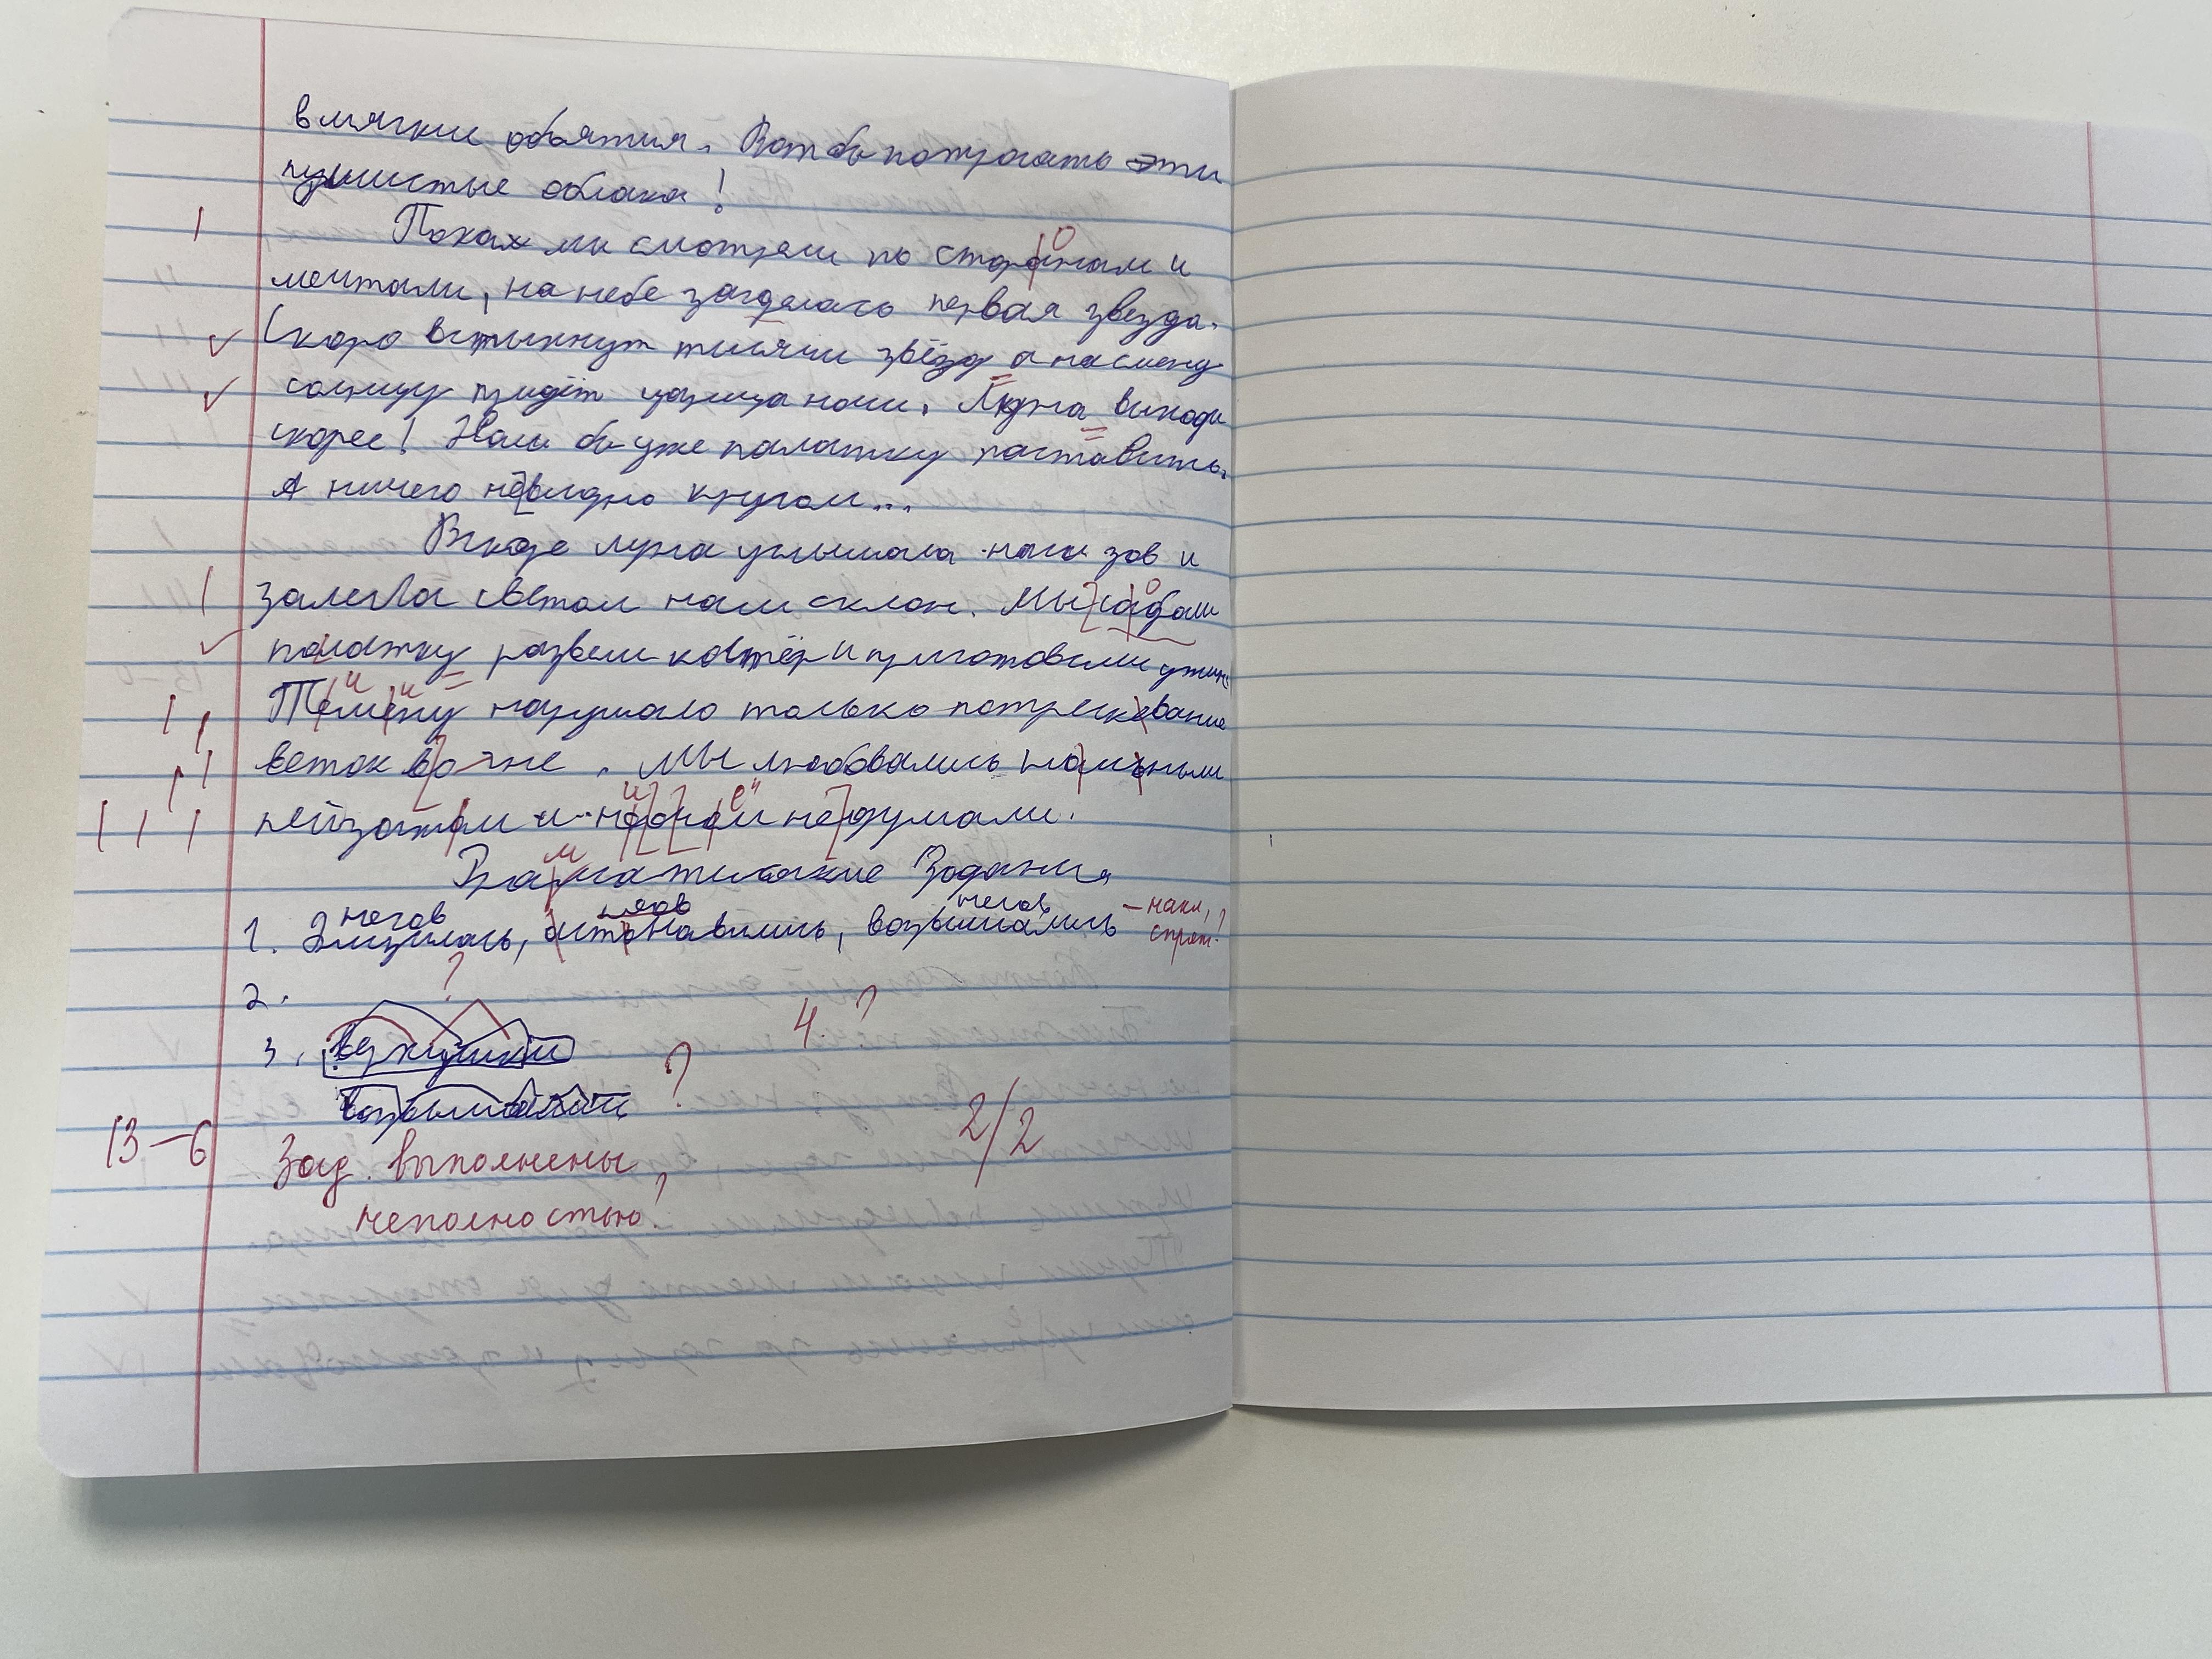 в мягкие объятия. Вот бы потрогать эти
пушистые облака!
Пока мы смотрели по старанам и
о
мечтали, на небе загделась первая звезда.
Скоро вспыхнут тысячи звёзд а на смену
солнцу придёт царица ночи. Лдна выходи
скорее! Нам бы уже палатку паставить.
А ничего невидно кругом...
Вскоре луна услышала наш зов и
залела светом наш склон. Мы сабали
о
палатку развели костёр и приготовили ужин.
и и
Темену нарушало только потрескевание
веток во гне. Мы любовались
пейзажом и думали.
е
м
Задания
1. Злизилась, астанавились,
негов
— накл,
спряж?
2.
?
3.
4. ?
?
13 – 6
2/2
Зад. выполнены
неполностью?